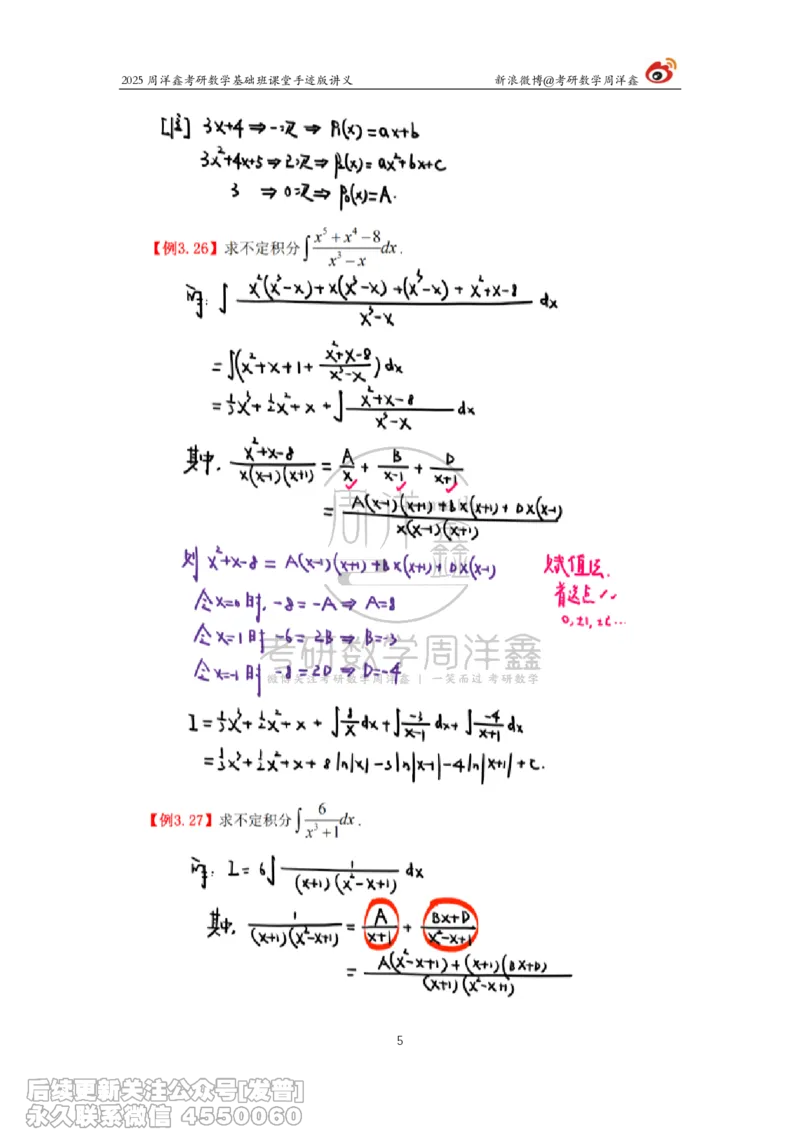 2025 周洋鑫考研数学基础班课堂手迹版讲义 新浪微博@考研数学周洋鑫
[注] 3x+4 ⇒ 一次 ⇒ P₁(x)=ax+b
3x²+4x+5 ⇒ 2次 ⇒ P₂(x)=ax²+bx+c
3 ⇒ 0次 ⇒ P₀(x)=A.
【例3.26】求不定积分∫(x⁵+x⁴−8)/(x³−x) dx.
解: ∫ [x²(x³−x)+x(x³−x)+(x³−x)+x²+x−8]/(x³−x) dx
=∫(x²+x+1+(x²+x−8)/(x³−x))dx
=⅓x³+½x²+x+∫(x²+x−8)/(x³−x) dx
其中, (x²+x−8)/(x(x−1)(x+1)) = A/x + B/(x−1) + D/(x+1)
= [A(x−1)(x+1)+Bx(x+1)+Dx(x−1)]/(x(x−1)(x+1))
则 x²+x−8 = A(x−1)(x+1)+Bx(x+1)+Dx(x−1)
赋值法.
令x=0时, −8=−A ⇒ A=8
着这点
0,±1,±2...
令x=1时 −6=2B ⇒ B=−3
令x=−1时 −8=2D ⇒ D=−4
I=⅓x³+½x²+x+∫8/x dx+∫−3/(x−1) dx+∫−4/(x+1) dx
=⅓x³+½x²+x+8ln|x|−3ln|x−1|−4ln|x+1|+C.
【例3.27】求不定积分∫6/(x³+1) dx.
解: I=6∫1/((x+1)(x²−x+1)) dx
其中, 1/((x+1)(x²−x+1)) = A/(x+1) + (Bx+D)/(x²−x+1)
= [A(x²−x+1)+(x+1)(Bx+D)]/((x+1)(x²−x+1))
周洋鑫
考研数学周洋鑫
微博关注考研数学周洋鑫 | 一笑而过 考研数学
5
后续更新关注公众号[发普]
永久联系微信 4550060